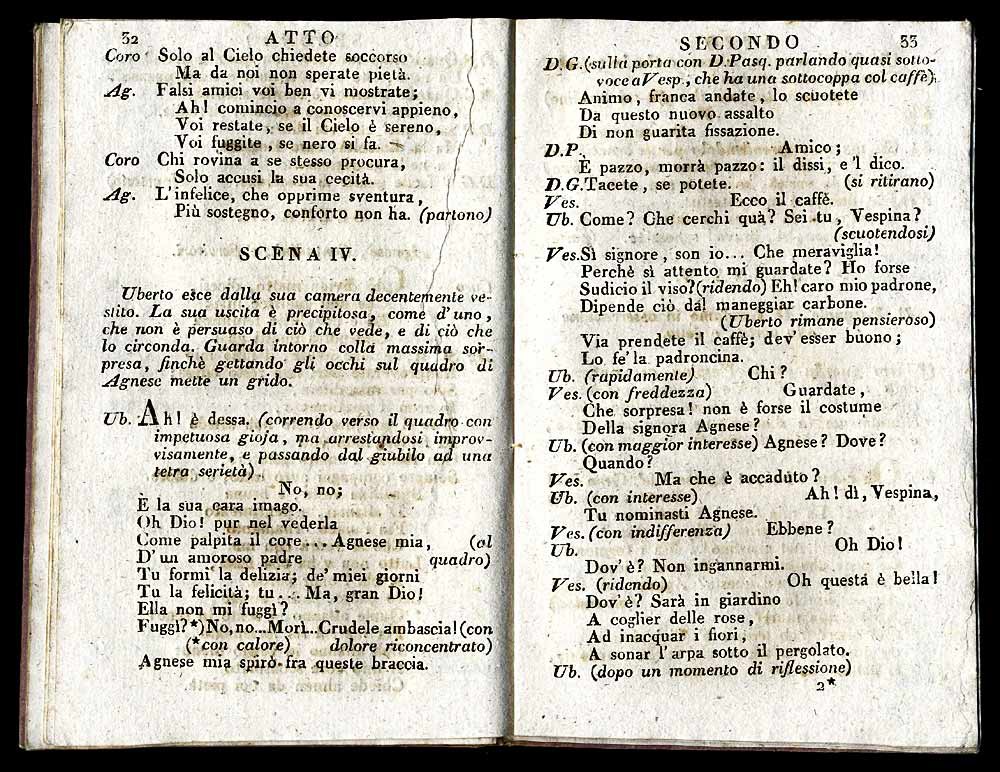 32 ATTO
Coro Solo al Cielo chiedete soccorso
Ma da noi non sperate pietà.
Ag. Falsi amici voi ben vi mostrate;
Ah! comincio a conoscervi appieno,
Voi restate, se il Cielo è sereno,
Voi fuggite, se nero si fa.
Coro Chi rovina a se stesso procura,
Solo accusi la sua cecità.
Ag. L'infelice, che opprime sventura,
Più sostegno, conforto non ha. (partono)
SCENA IV.
Uberto esce dalla sua camera decentemente ve-
stito. La sua uscita è precipitosa, come d'uno,
che non è persuaso di ciò che vede, e di ciò che
lo circonda. Guarda intorno colla massima sor-
presa, finchè gettando gli occhi sul quadro di
Agnese mette un grido.
Ub. Ah! è dessa. (correndo verso il quadro con
impetuosa gioja, ma arrestandosi improv-
visamente, e passando dal giubilo ad una
tetra serietà)
No, no;
È la sua cara imago.
Oh Dio! pur nel vederla
Come palpita il core... Agnese mia, (al
D'un amoroso padre quadro)
Tu formi la delizia; de' miei giorni
Tu la felicità; tu... Ma, gran Dio!
Ella non mi fuggì?
Fuggì?*)No, no...Morì...Crudele ambascia!(con
(*con calore) dolore riconcentrato)
Agnese mia spirò fra queste braccia.
SECONDO 33
D.G.(sulla porta con D.Pasq. parlando quasi sotto-
voce a Vesp., che ha una sottocoppa col caffè).
Animo, franca andate, lo scuotete
Da questo nuovo assalto
Di non guarita fissazione.
D.P. Amico;
È pazzo, morrà pazzo: il dissi, e 'l dico.
D.G.Tacete, se potete. (si ritirano)
Ves. Ecco il caffè.
Ub. Come? Che cerchi quà? Sei tu, Vespina?
(scuotendosi)
Ves.Sì signore, son io... Che meraviglia!
Perchè sì attento mi guardate? Ho forse
Sudicio il viso?(ridendo) Eh! caro mio padrone,
Dipende ciò dal maneggiar carbone.
(Uberto rimane pensieroso)
Via prendete il caffè; dev'esser buono;
Lo fe' la padroncina.
Ub. (rapidamente) Chi?
Ves. (con freddezza) Guardate,
Che sorpresa! non è forse il costume
Della signora Agnese?
Ub. (con maggior interesse) Agnese? Dove?
Quando?
Ves. Ma che è accaduto?
Ub. (con interesse) Ah! dì, Vespina,
Tu nominasti Agnese.
Ves. (con indifferenza) Ebbene?
Ub. Oh Dio!
Dov'è? Non ingannarmi.
Ves. (ridendo) Oh questa è bella!
Dov'è? Sarà in giardino
A coglier delle rose,
Ad inacquar i fiori,
A sonar l'arpa sotto il pergolato.
Ub. (dopo un momento di riflessione)
2*